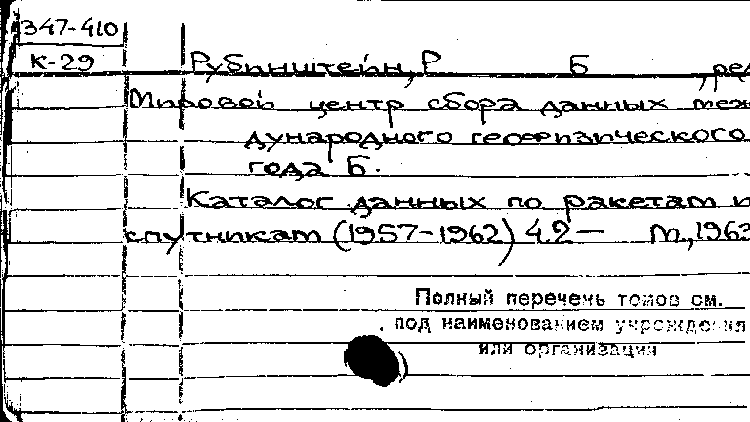 347-410
К-29
Рубинштейн, Р Б , ред
Мировой центр сбора данных меж
дународного геофизического
года Б.
Каталог данных по ракетам и
спутникам (1957-1962) ч.2 — М., 1963
Полный перечень томов см.
под наименованием учреждения
или организации